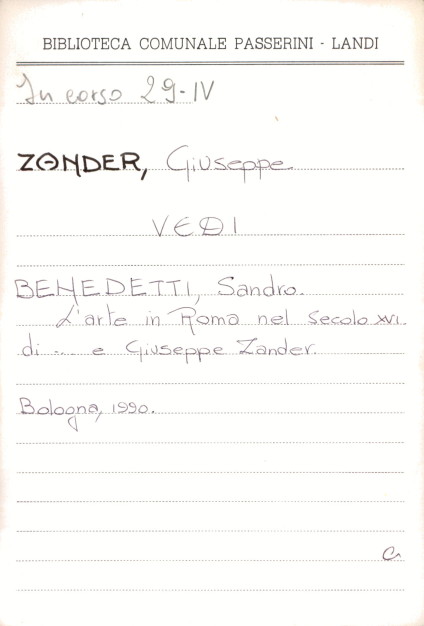 BIBLIOTECA COMUNALE PASSERINI - LANDI
In corso 29-IV
ZANDER, Giuseppe
VEDI
BENEDETTI, Sandro.
L'arte in Roma nel secolo XVI.
di ... e Giuseppe Zander.
Bologna, 1990.